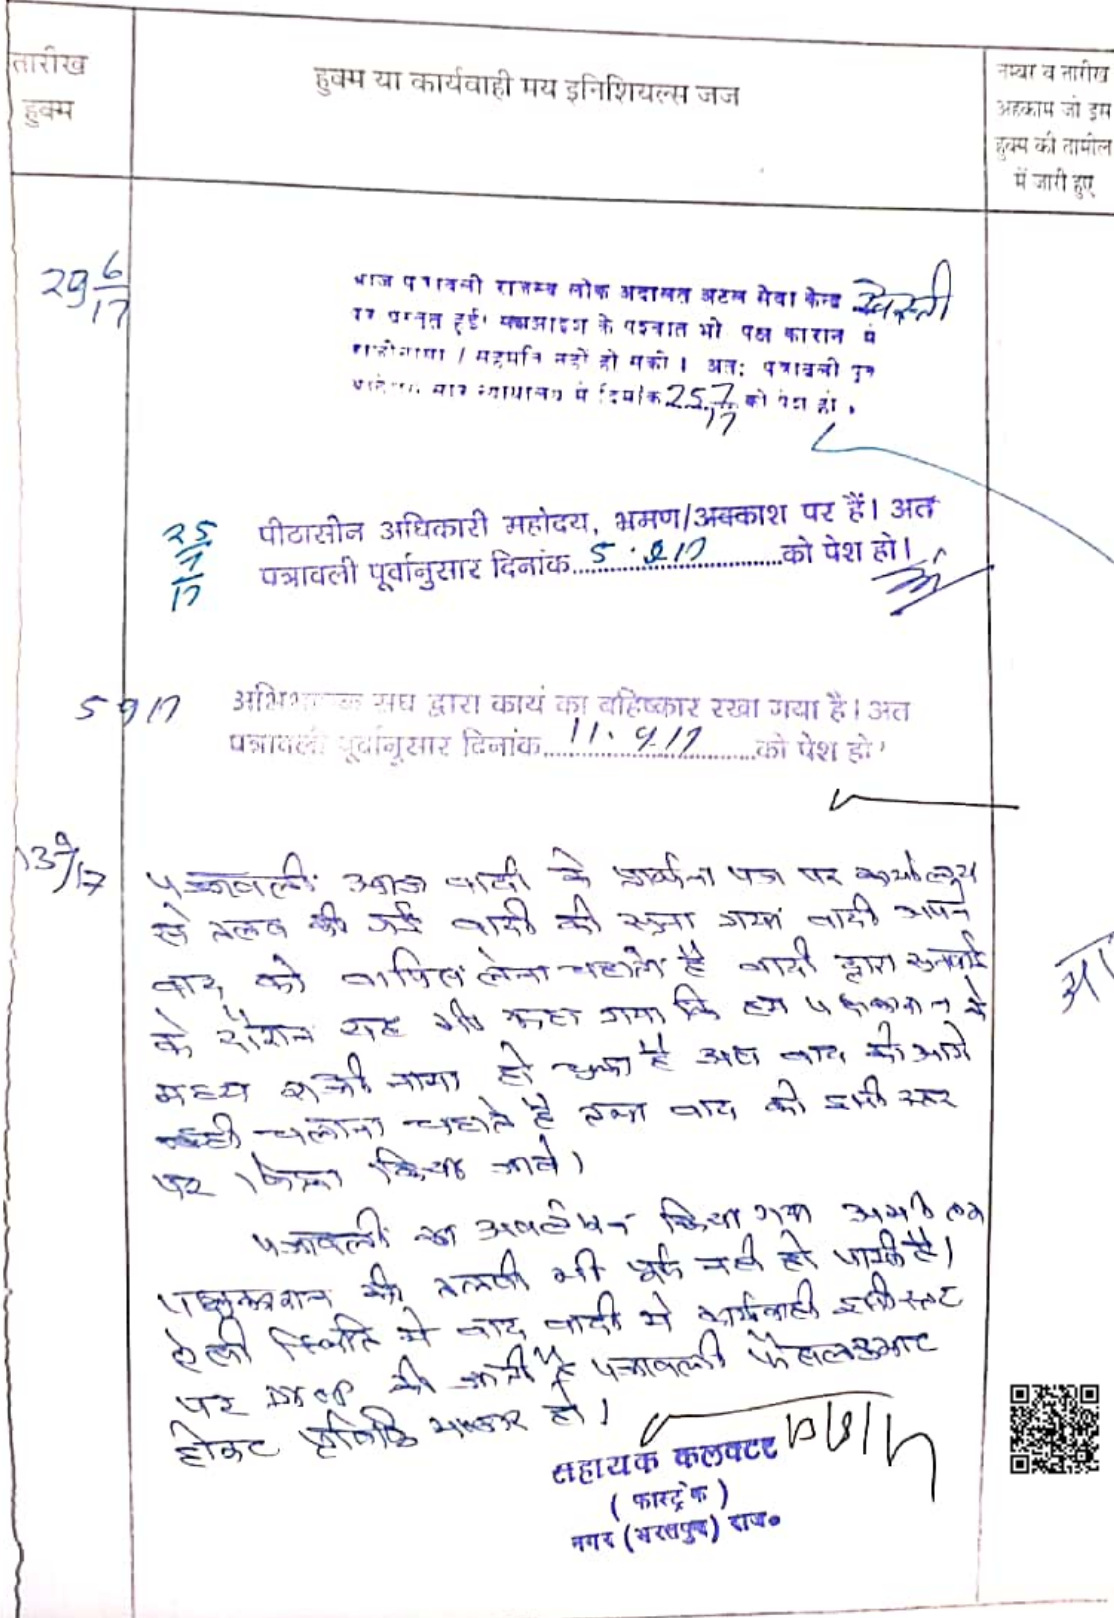 तारीख
हुक्म
हुक्म या कार्यवाही मय इनिशियल्स जज
नम्बर व तारीख
अहकाम जो इस
हुक्म की तामील
में जारी हुए
29 6/17
आज पत्रावली राजस्व लोक अदालत अटल सेवा केन्द्र
पर प्रस्तुत हुई। के पश्चात भी पक्ष कारान में
राजीनामा / सहमति नहीं हो सकी। अत: पत्रावली
न्यायालय में दिनांक 25 7/17 को पेश हो।
25/7/17
पीठासीन अधिकारी महोदय, भ्रमण/अवकाश पर हैं। अत
पत्रावली पूर्वानुसार दिनांक 5.9.17 को पेश हो।
5 9 17
अभिभाषक संघ द्वारा कार्य का बहिष्कार रखा गया है। अत
पत्रावली पूर्वानुसार दिनांक 11.9.17 को पेश हो
13 9/17
पत्रावली आज वादी के प्रार्थना पत्र पर
से तलब की गई वादी को सुना गया वादी अपने
वाद को वापिस लेना चहाते है वादी द्वारा सुनवाई
के दौरान यह भी कहा गया कि हम पक्षकारान के
मध्य राजीनामा हो चुका है अतः वाद को आगे
नही चलाना चहाते है तथा वाद को इसी स्तर
पर किया जावे।
पत्रावली का अवलोकन किया गया अभी तक
पक्षकारान की तलबी भी पूर्ण नही हो पायी है।
ऐसी स्थिति मे वाद वादी मे कार्यवाही इसी स्तर
पर Drop की जाती है पत्रावली फैसल शुमार
होकर दाखिल दफ्तर हो।
सहायक कलक्टर
(फास्ट्रेक)
नगर (भरतपुर) राज०